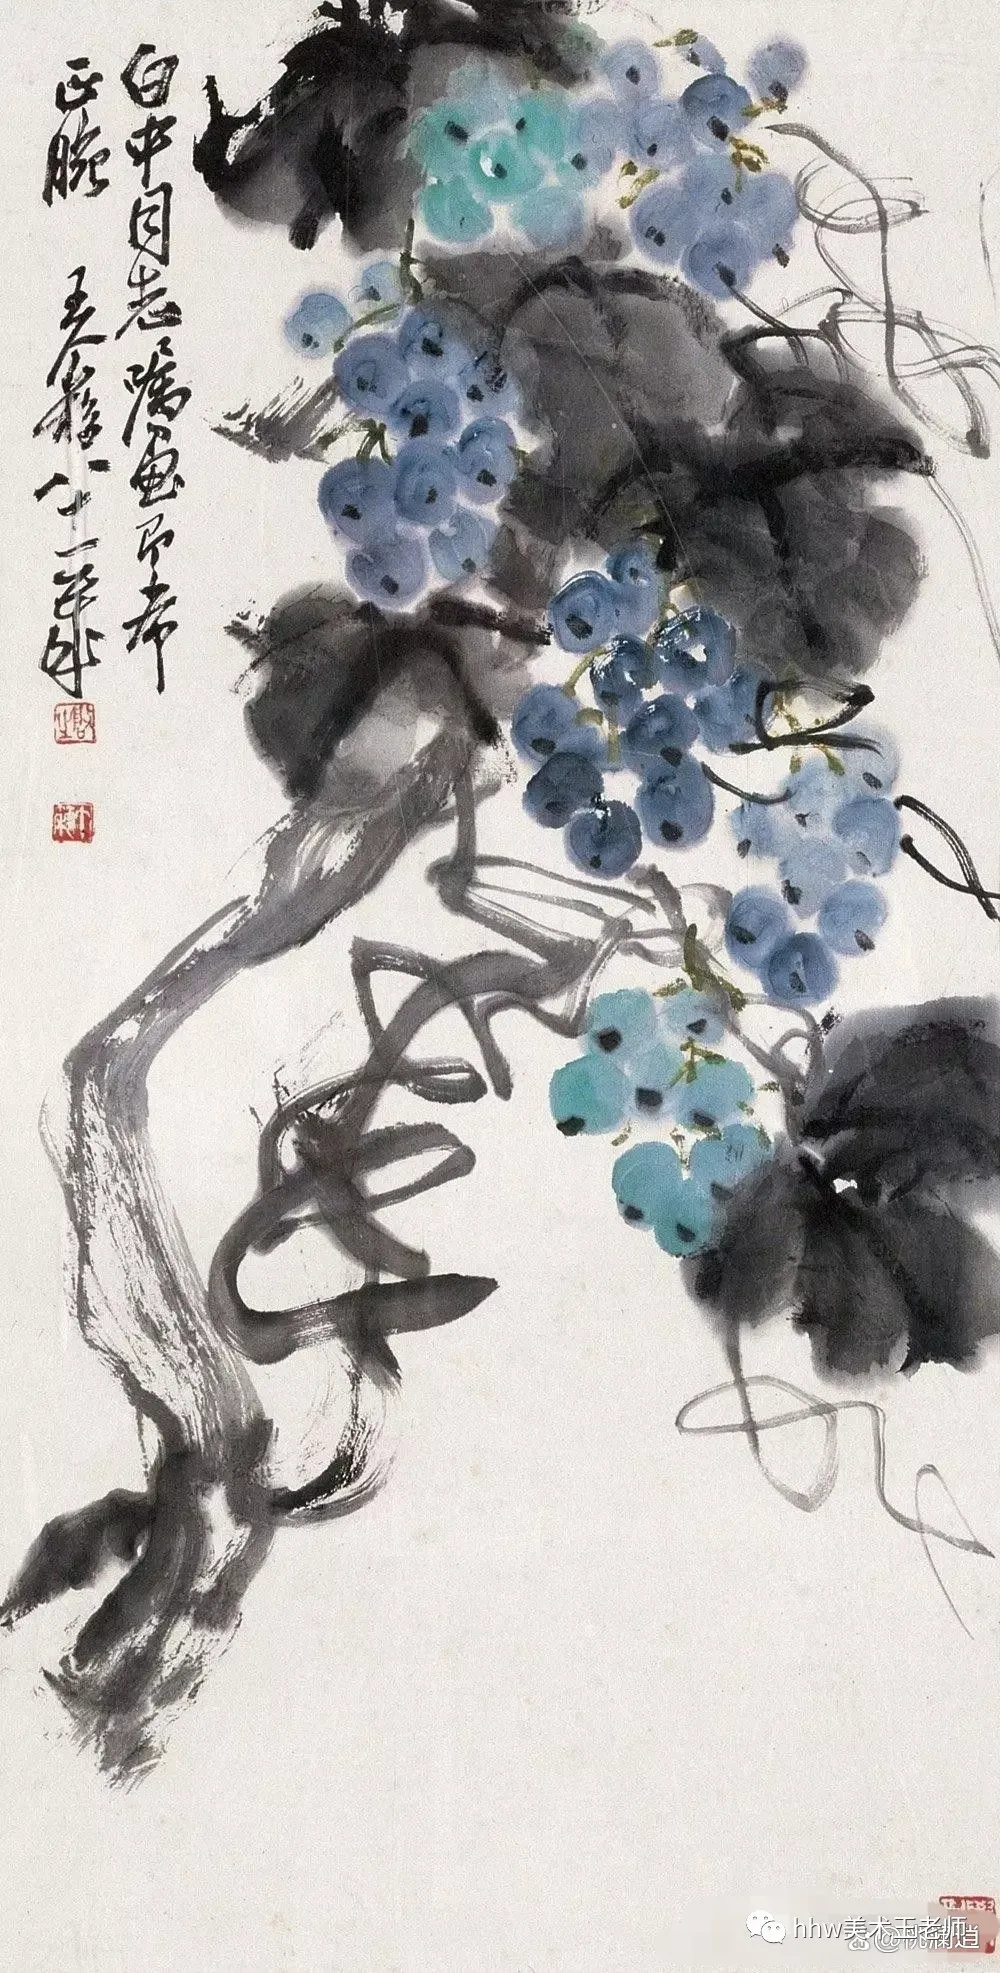 白中同志嘱画即希
正腕 王个簃八十一
hhw美术王老师